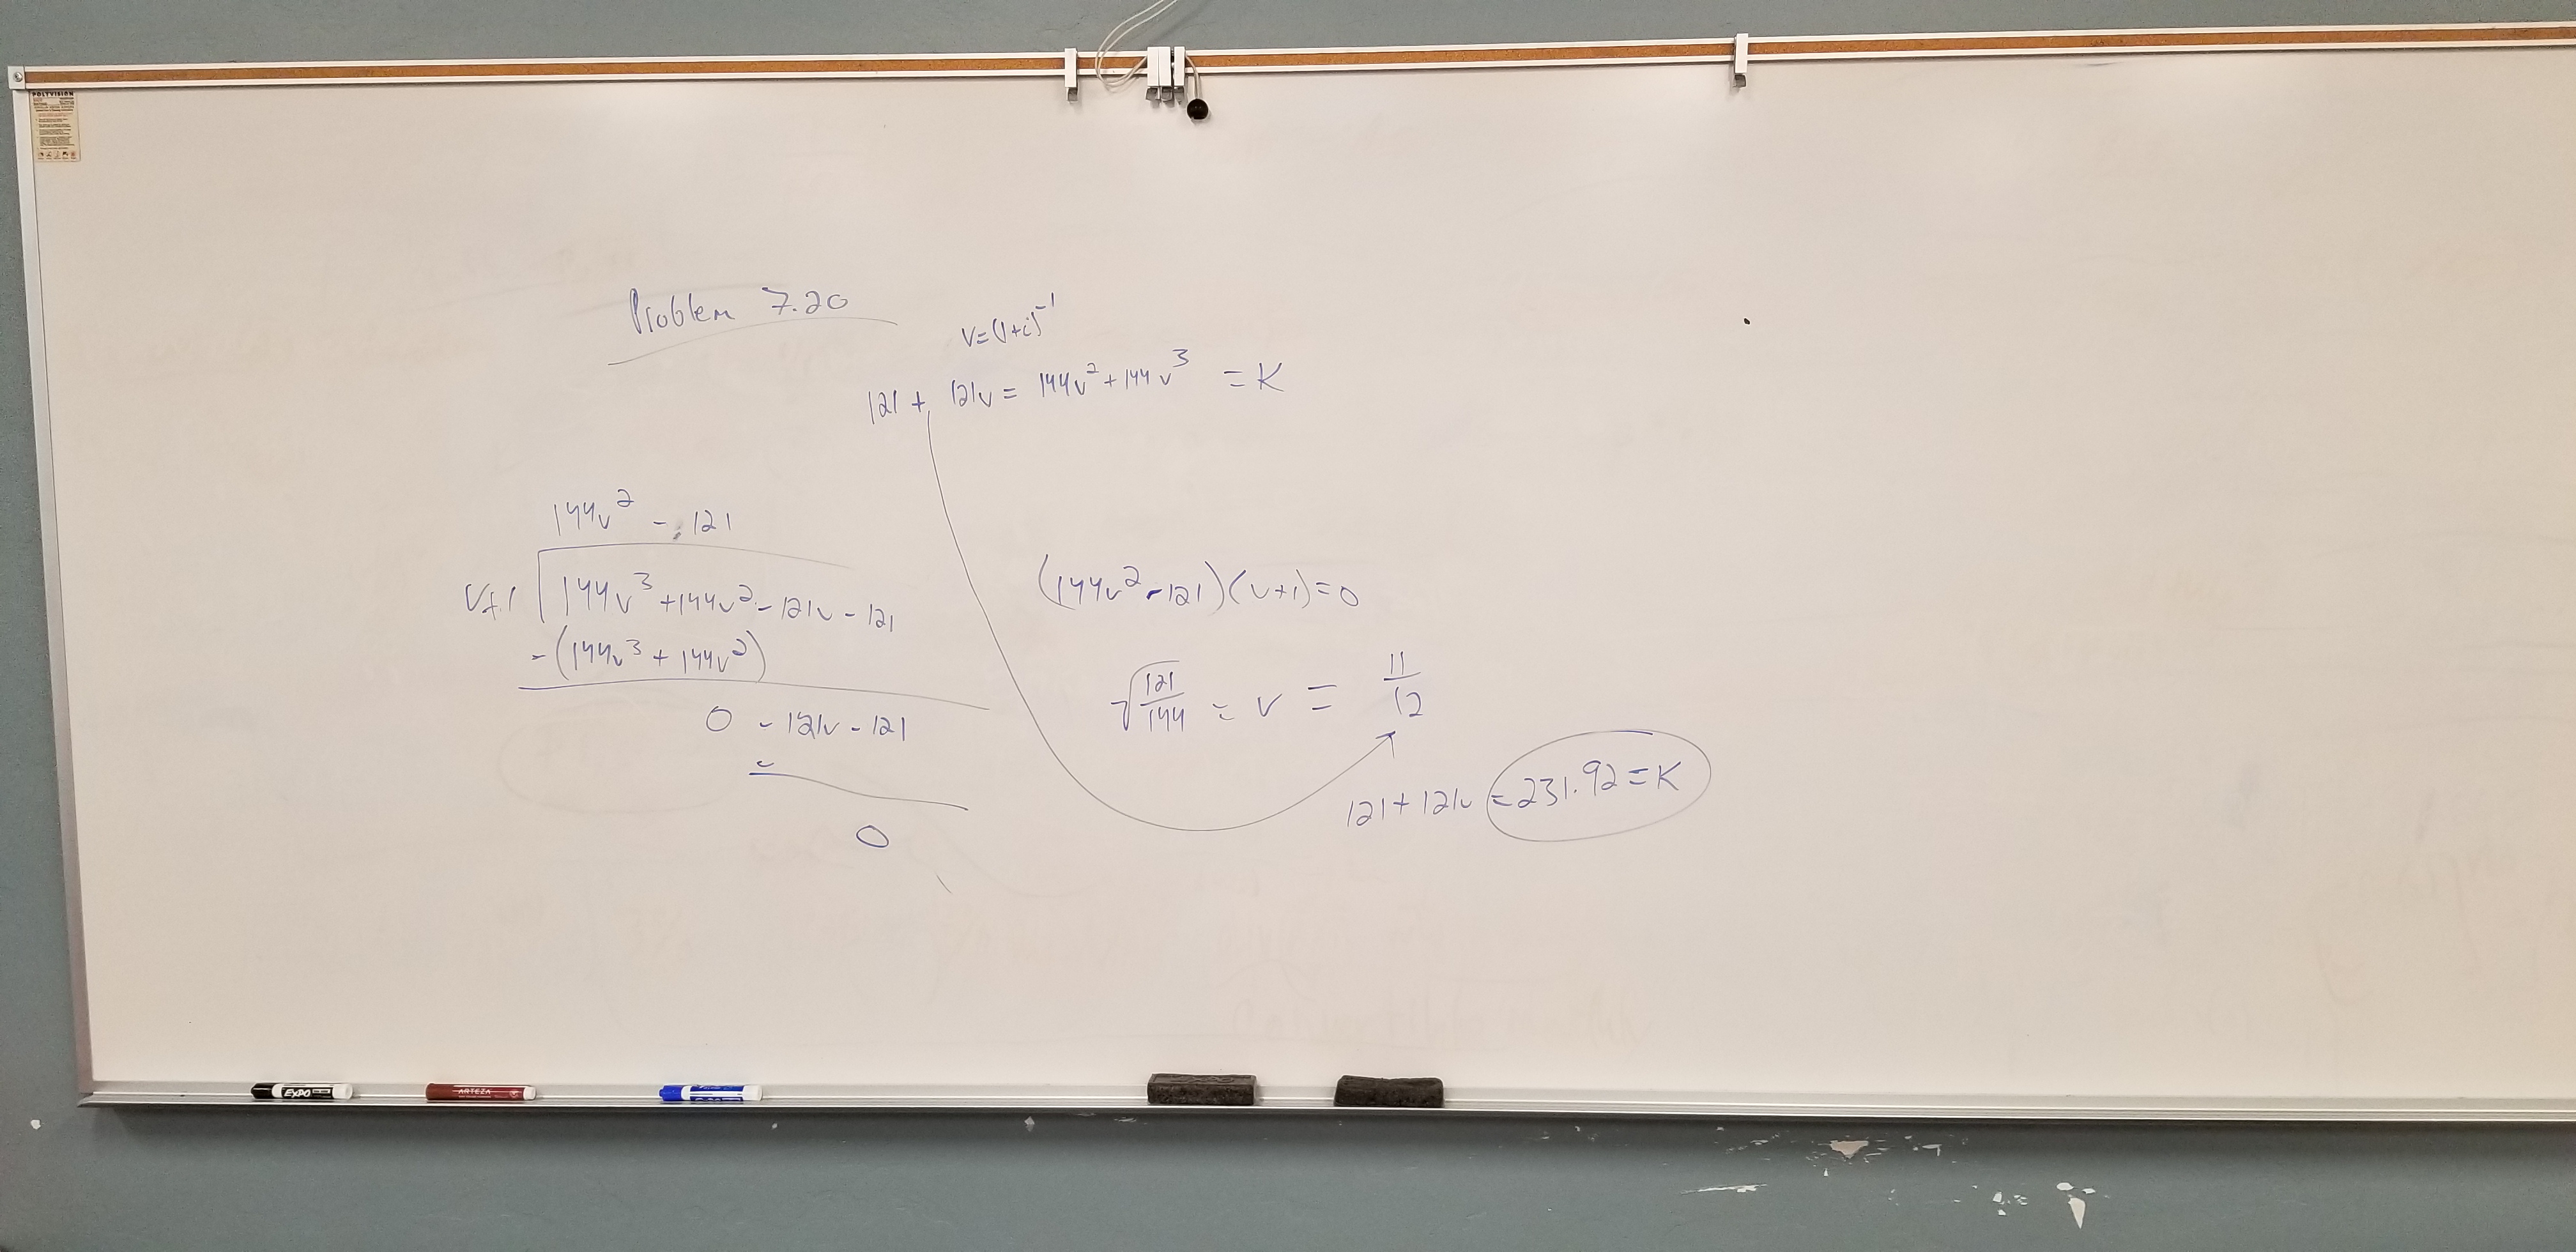 POLYVISION
Problem 7.20
v=(1+i)⁻¹
121 + 121v = 144v² + 144v³ = K
144v² - 121
v+1 144v³ + 144v² - 121v - 121
-(144v³ + 144v²)
0 - 121v - 121
-
0
(144v² - 121)(v+1)=0
√121/144 = v = 11/12
121 + 121v = 231.92 = K
EXPO
ARTEZA